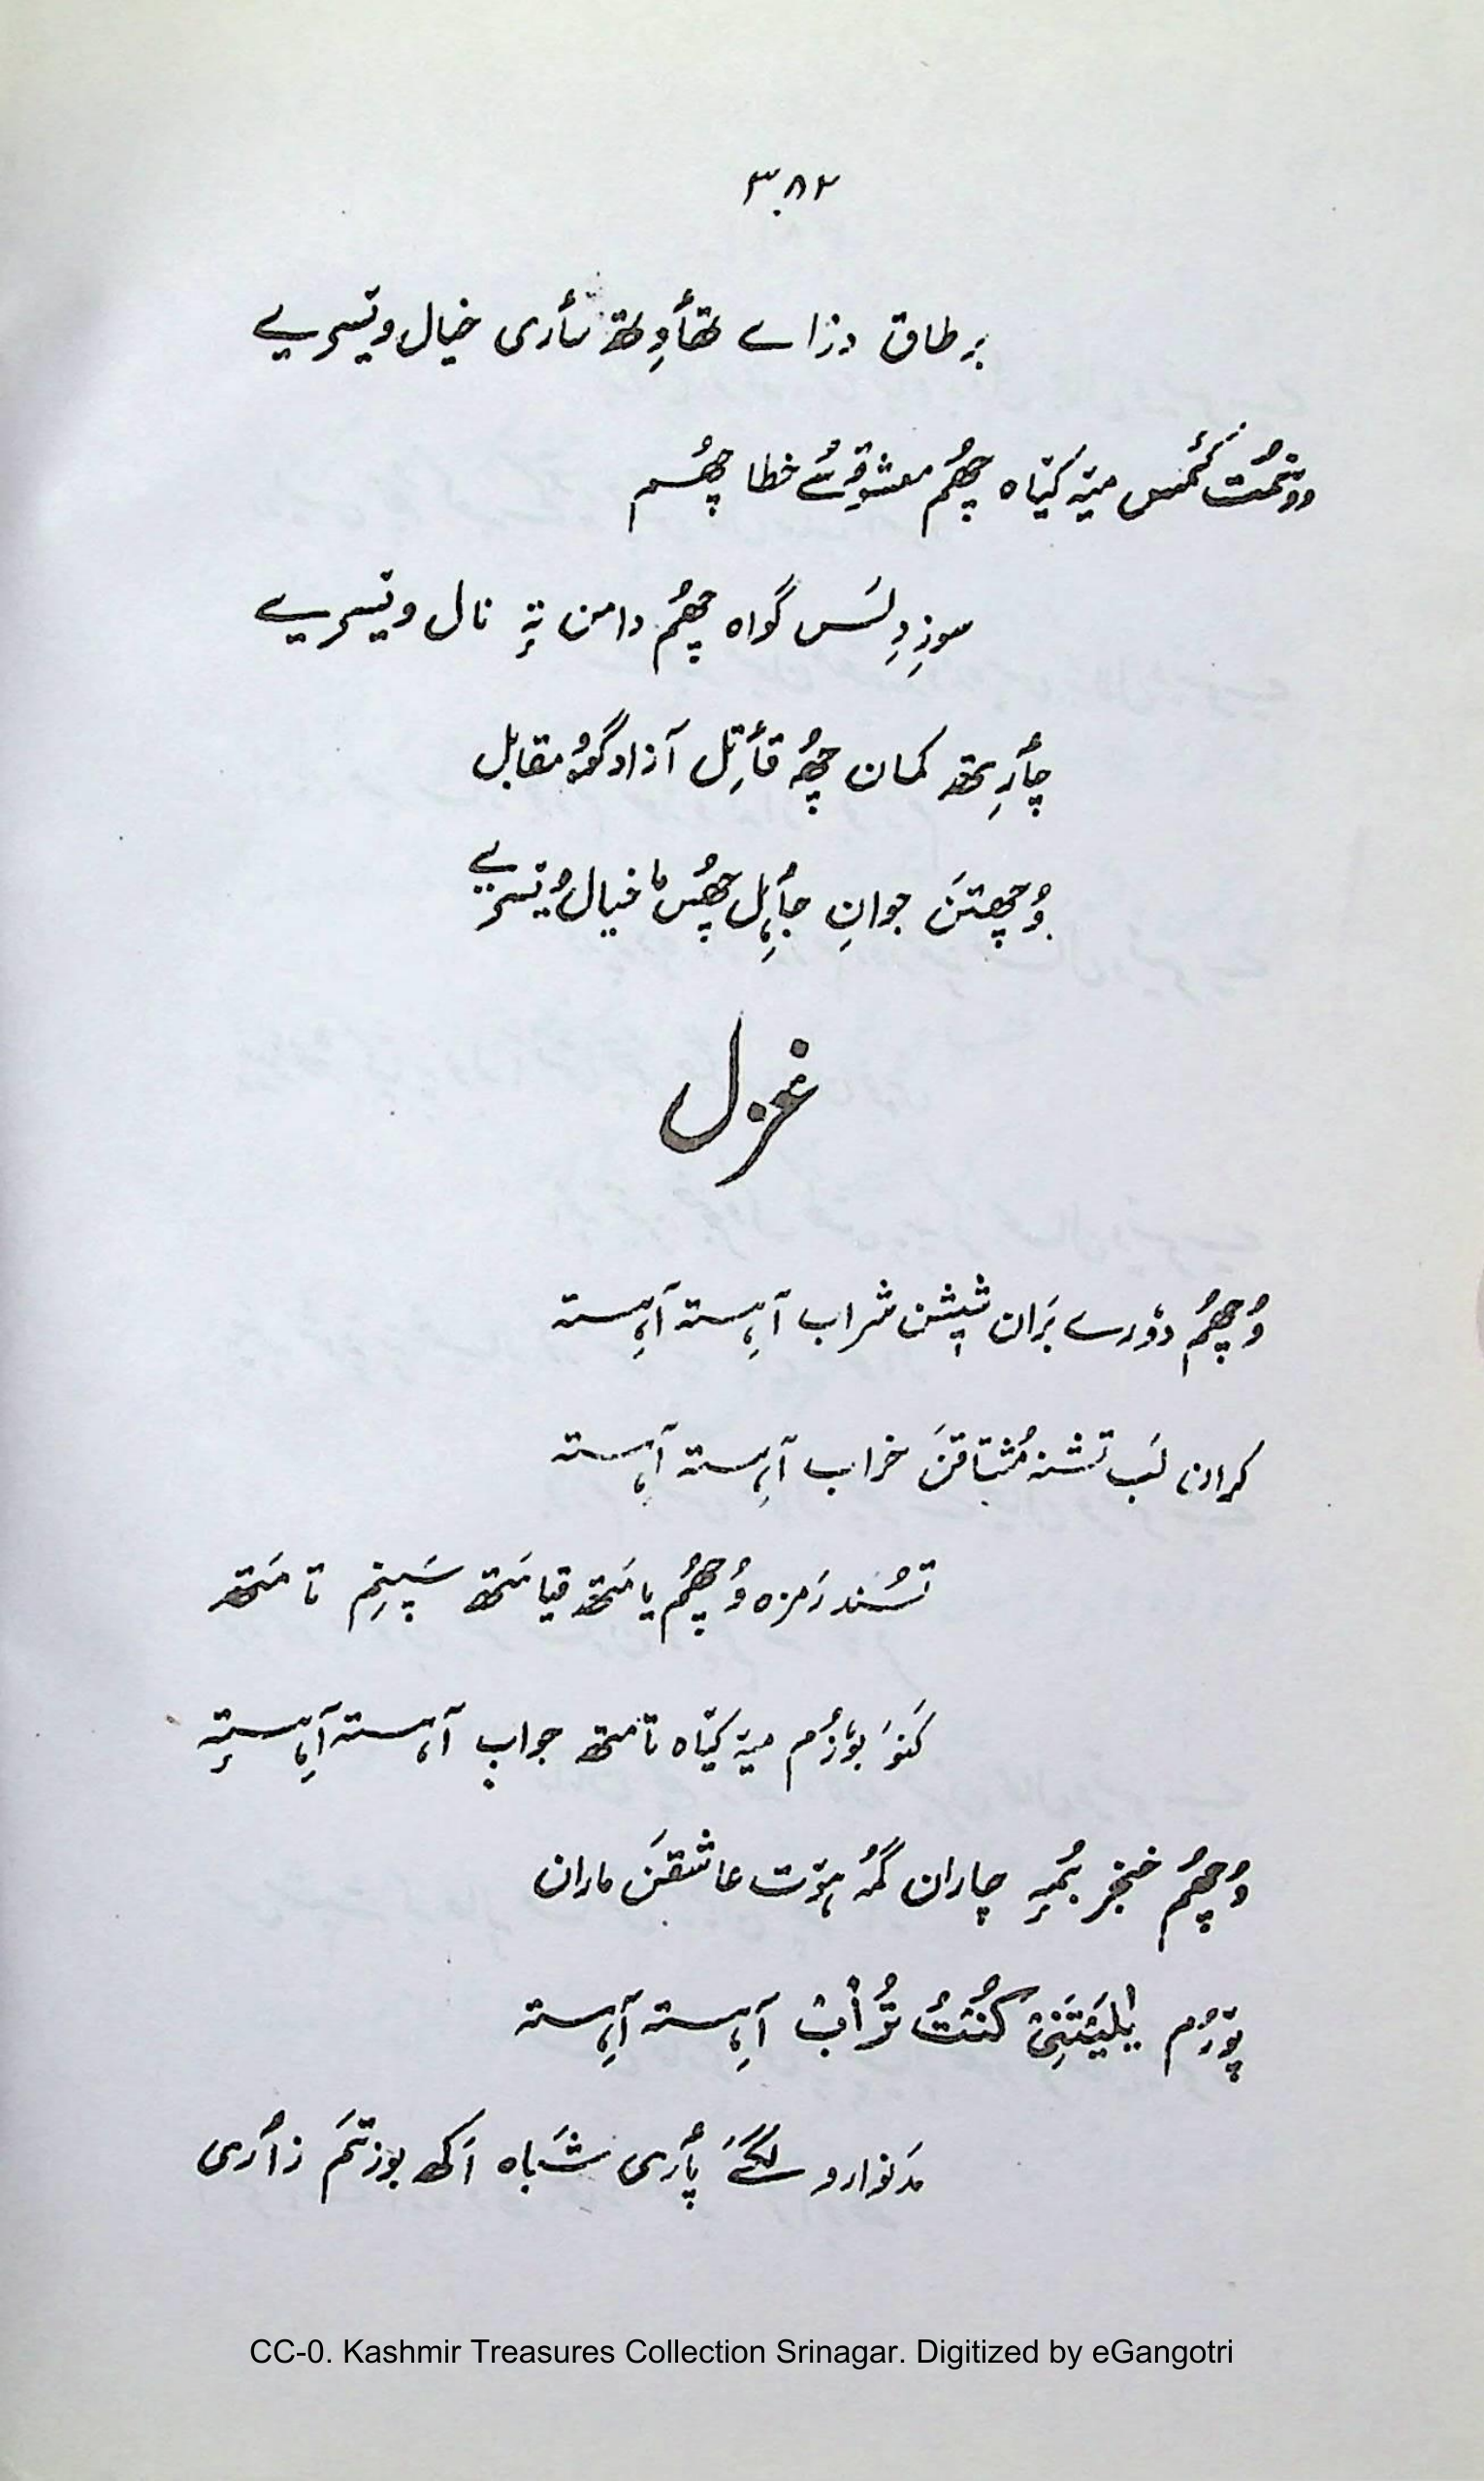 ۳۸۲
بر طاق دزاے تھٲوِتھ سٲری خیال ویسریے
وونمُت کَمٔس میہٚ کیٚاہ چھُم معشوقہٕ سُے خطا چھُم
سوزِ دِلَس گواہ چھُم دامن تہٕ نال ویسریے
چٲرِتھ کمان چھُہ قٲتِل آزاد گوٚمُ مقابل
وُچھتَن جوانِ جٲہِل چھُس نا خیال ویسریے
غزل
وُچھُم دوٗرے بَران شیشن شراب آہِستہ آہِستہ
کران لَب تشنہ مُشتاقَن خراب آہِستہ آہستہ
تسُند رَمزہ وُچھُم یامَتھ قیامَتھ سَپنِم تامَتھ
کَنوَ بوٗزُم میہٚ کیٚاہ تامتھ جواب آہستہ آہِستہٕ
وُچھُم خنجر بُمہٕ چاران گمُہ ہیوٚت عاشقَن ماران
پوٚرُم یٰلَیتَنِی کُنتُ تُرٰابْ آہِستہ آہِستہ
مَدنوارو لگَے پٲری شَباہ اَکھ بوزتَم زٲری
CC-0. Kashmir Treasures Collection Srinagar. Digitized by eGangotri